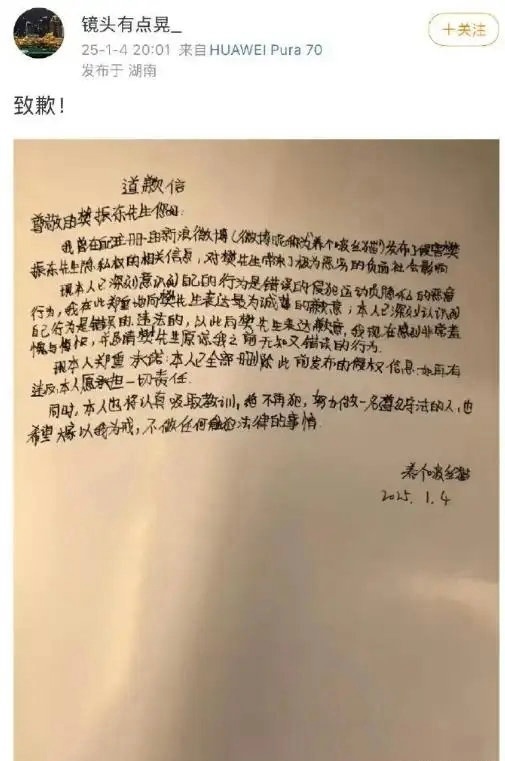 镜头有点晃_
25-1-4 20:01 来自 HUAWEI Pura 70
发布于 湖南
+关注
致歉！
道歉信
尊敬的樊振东先生你好:
我曾在所注册的新浪微博(微博昵称为养个啵丝猫)发布了侵害樊
振东先生隐私权的相关信息，对樊先生带来了极为恶劣的负面社会影响
现本人已深刻意识到自己的行为是错误的侵犯运动员隐私的恶意
行为，我在此郑重地向樊先生表达最为诚挚的歉意；本人已深刻认识到
自己行为是错误的、违法的，以此向樊先生表达歉意，我现在感到非常羞
愧与悔恨，并恳请樊先生原谅我之前无知又错误的行为.
现本人郑重承诺:本人已全部删除此前发布的侵权信息.如再有
违反,本人愿承担一切责任.
同时，本人也将认真吸取教训，绝不再犯，努力做一名遵纪守法的人，也
希望大家以我为戒，不做任何触犯法律的事情.
养个啵丝猫
2025. 1. 4